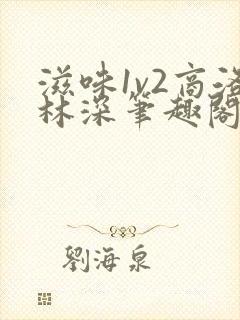 滋味1v2高洛
林深笔趣阁
刘海泉